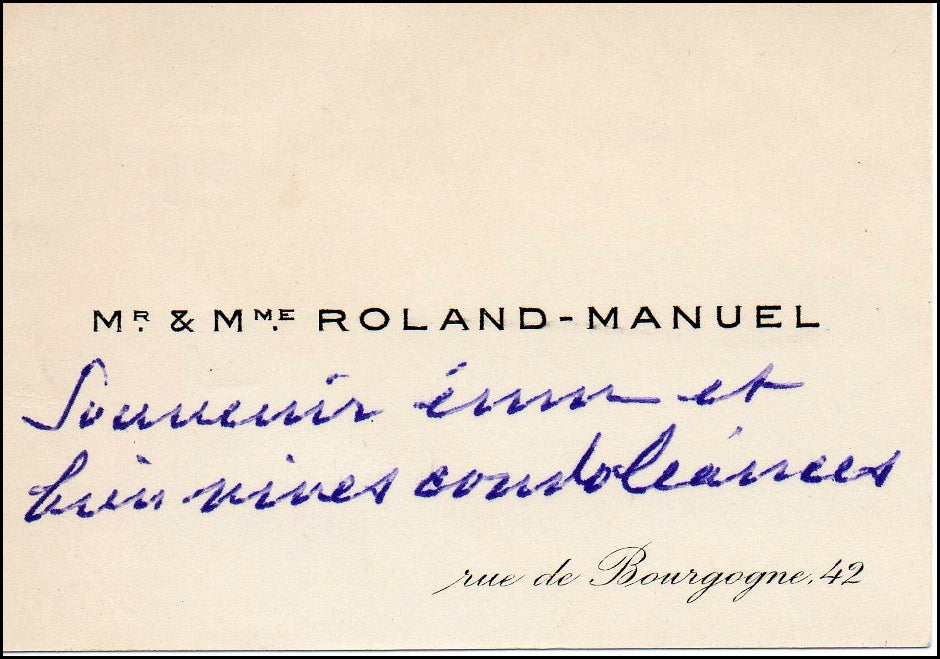 MR. & MME. ROLAND-MANUEL
Souvenir ému et
bien vives condoléances
rue de Bourgogne, 42